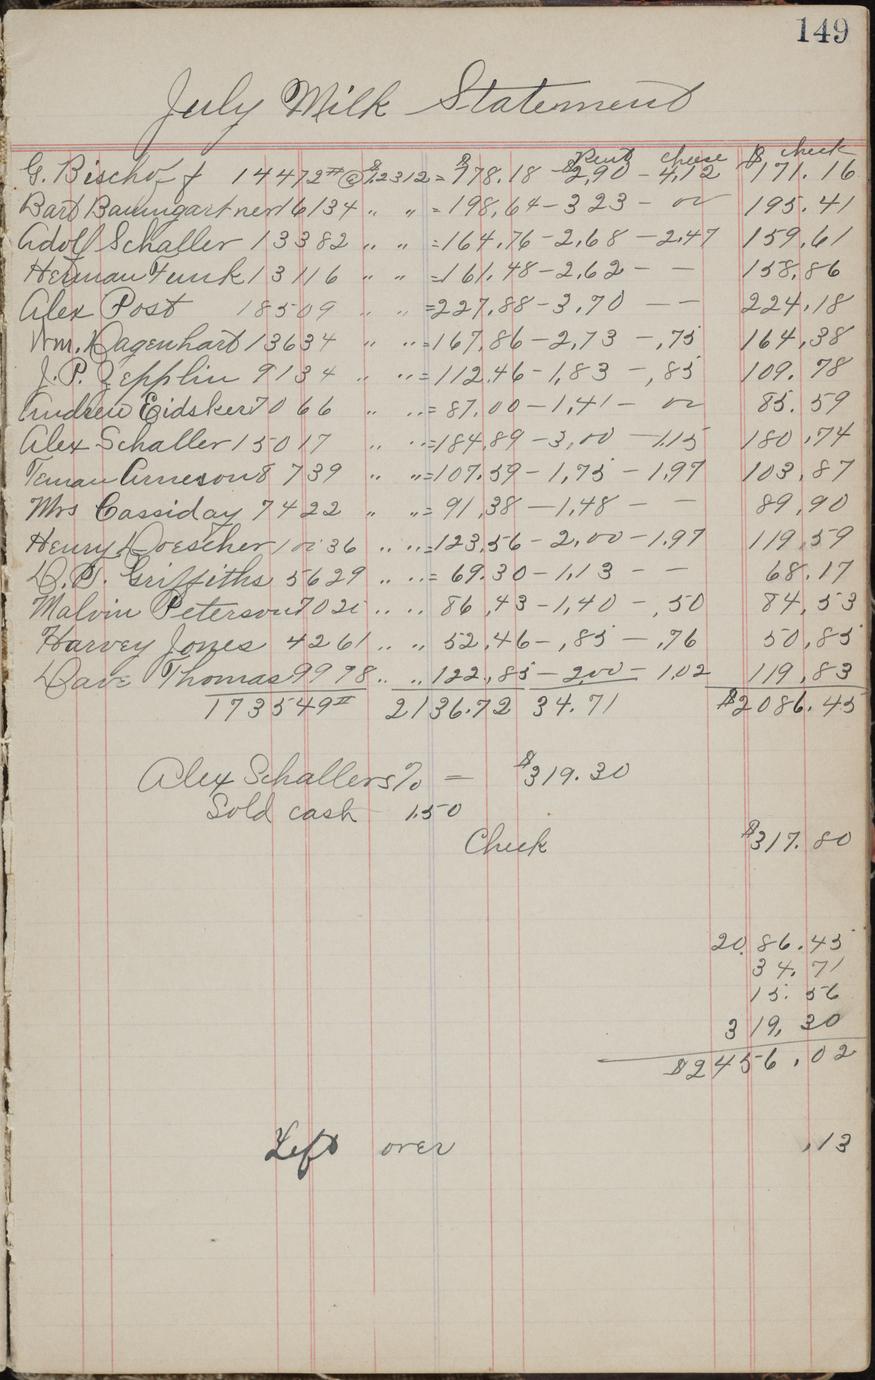 149
July Milk Statement
Rent cheese $ check
G. Bischoff 14472# @ $1.2312 = $178.18 - $2.90 - 4.12 171.16
Bart Baumgartner 16134 " " = 198.64 - 3 23 - 00 195.41
Adolf Schaller 13382 " " = 164.76 - 2.68 - 2.47 159.61
Herman Funk 13116 " " = 161.48 - 2.62 - - 158.86
Alex Post 18509 " " = 227.88 - 3.70 - - 224.18
Wm. Dagenhart 13634 " " = 167.86 - 2.73 - .75 164.38
J. P. Zepplin 9134 " " = 112.46 - 1.83 - .85 109.78
Andrew Eidsker 7066 " " = 87.00 - 1.41 - 00 85.59
Alex Schaller 15017 " " = 184.89 - 3.00 - 1.15 180.74
Teman Arneson 8739 " " = 107.59 - 1.75 - 1.97 103.87
Mrs Cassiday 7422 " " = 91.38 - 1.48 - - 89.90
Henry Doescher 10036 " " = 123.56 - 2.00 - 1.97 119.59
D. J. Griffiths 5629 " " = 69.30 - 1.13 - - 68.17
Malvin Peterson 7020 " " 86.43 - 1.40 - .50 84.53
Harvey Jones 4261 " " 52.46 - .85 - .76 50.85
Dave Thomas 9978 " " 122.85 - 2.00 - 1.02 119.83
173549# 2136.72 34.71 $2086.45
Alex Schallers % = $319.30
Sold cash 1.50
Check $317.80
2086.45
34.71
15.56
319.30
$2456.02
Left over .13